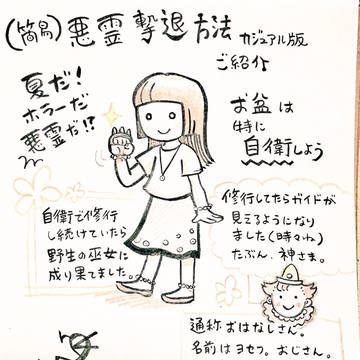 (簡易)悪霊撃退方法 カジュアル版
ご紹介
夏だ!
ホラーだ
悪霊だ!?
お盆は
特に
自衛しよう
自衛で修行
し続けていたら
野生の巫女に
成り果てました
修行してたらガイドが
見えるようになり
ました(時々ね)
たぶん、神さま。
通称おはなしさん。
名前はヨセフ。おじさん。